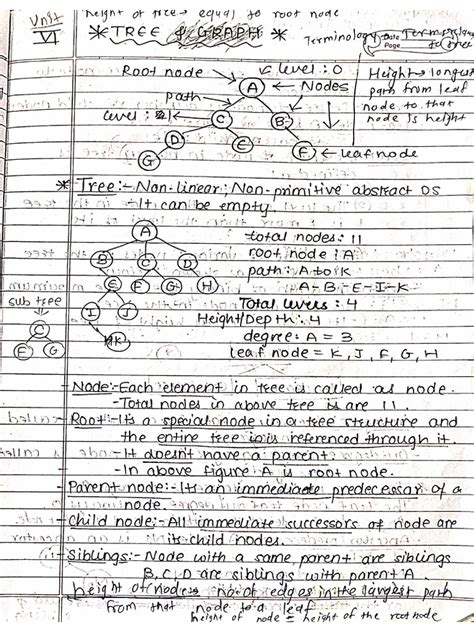 Unit
VI
height of tree → equal to root node
* TREE & GRAPH *
Terminology
Date
Page
Root node
level : 0
A
Nodes
path
level : 1
C
B
D
E
F
leaf node
G
Height → longest
path from leaf
node to that
node is height
* Tree :- Non-linear, Non-primitive abstract DS
- It can be empty.
A
B C D
E F G H
I J
K
total nodes : 11
root node : A
path : A to K
A-B-E-I-K
Total levels : 4
Height/Depth : 4
degree : A = 3
leaf node = K, J, F, G, H
sub tree
C
F G
- Node:- Each element in tree is called as node.
- Total nodes in above tree is are 11.
- Root:- It's a special node in a tree structure and
the entire tree is referenced through it.
- It doesn't have a parent.
- In above figure A is root node.
- Parent node:- It's an immediate predecessor of a
node.
- Child node:- All immediate successors of node are
its child nodes.
- Siblings:- Node with a same parent are siblings
B, C, D are siblings with parent A.
height of node → no. of edges in the largest path
from that node to a leaf
height of node = height of the root node